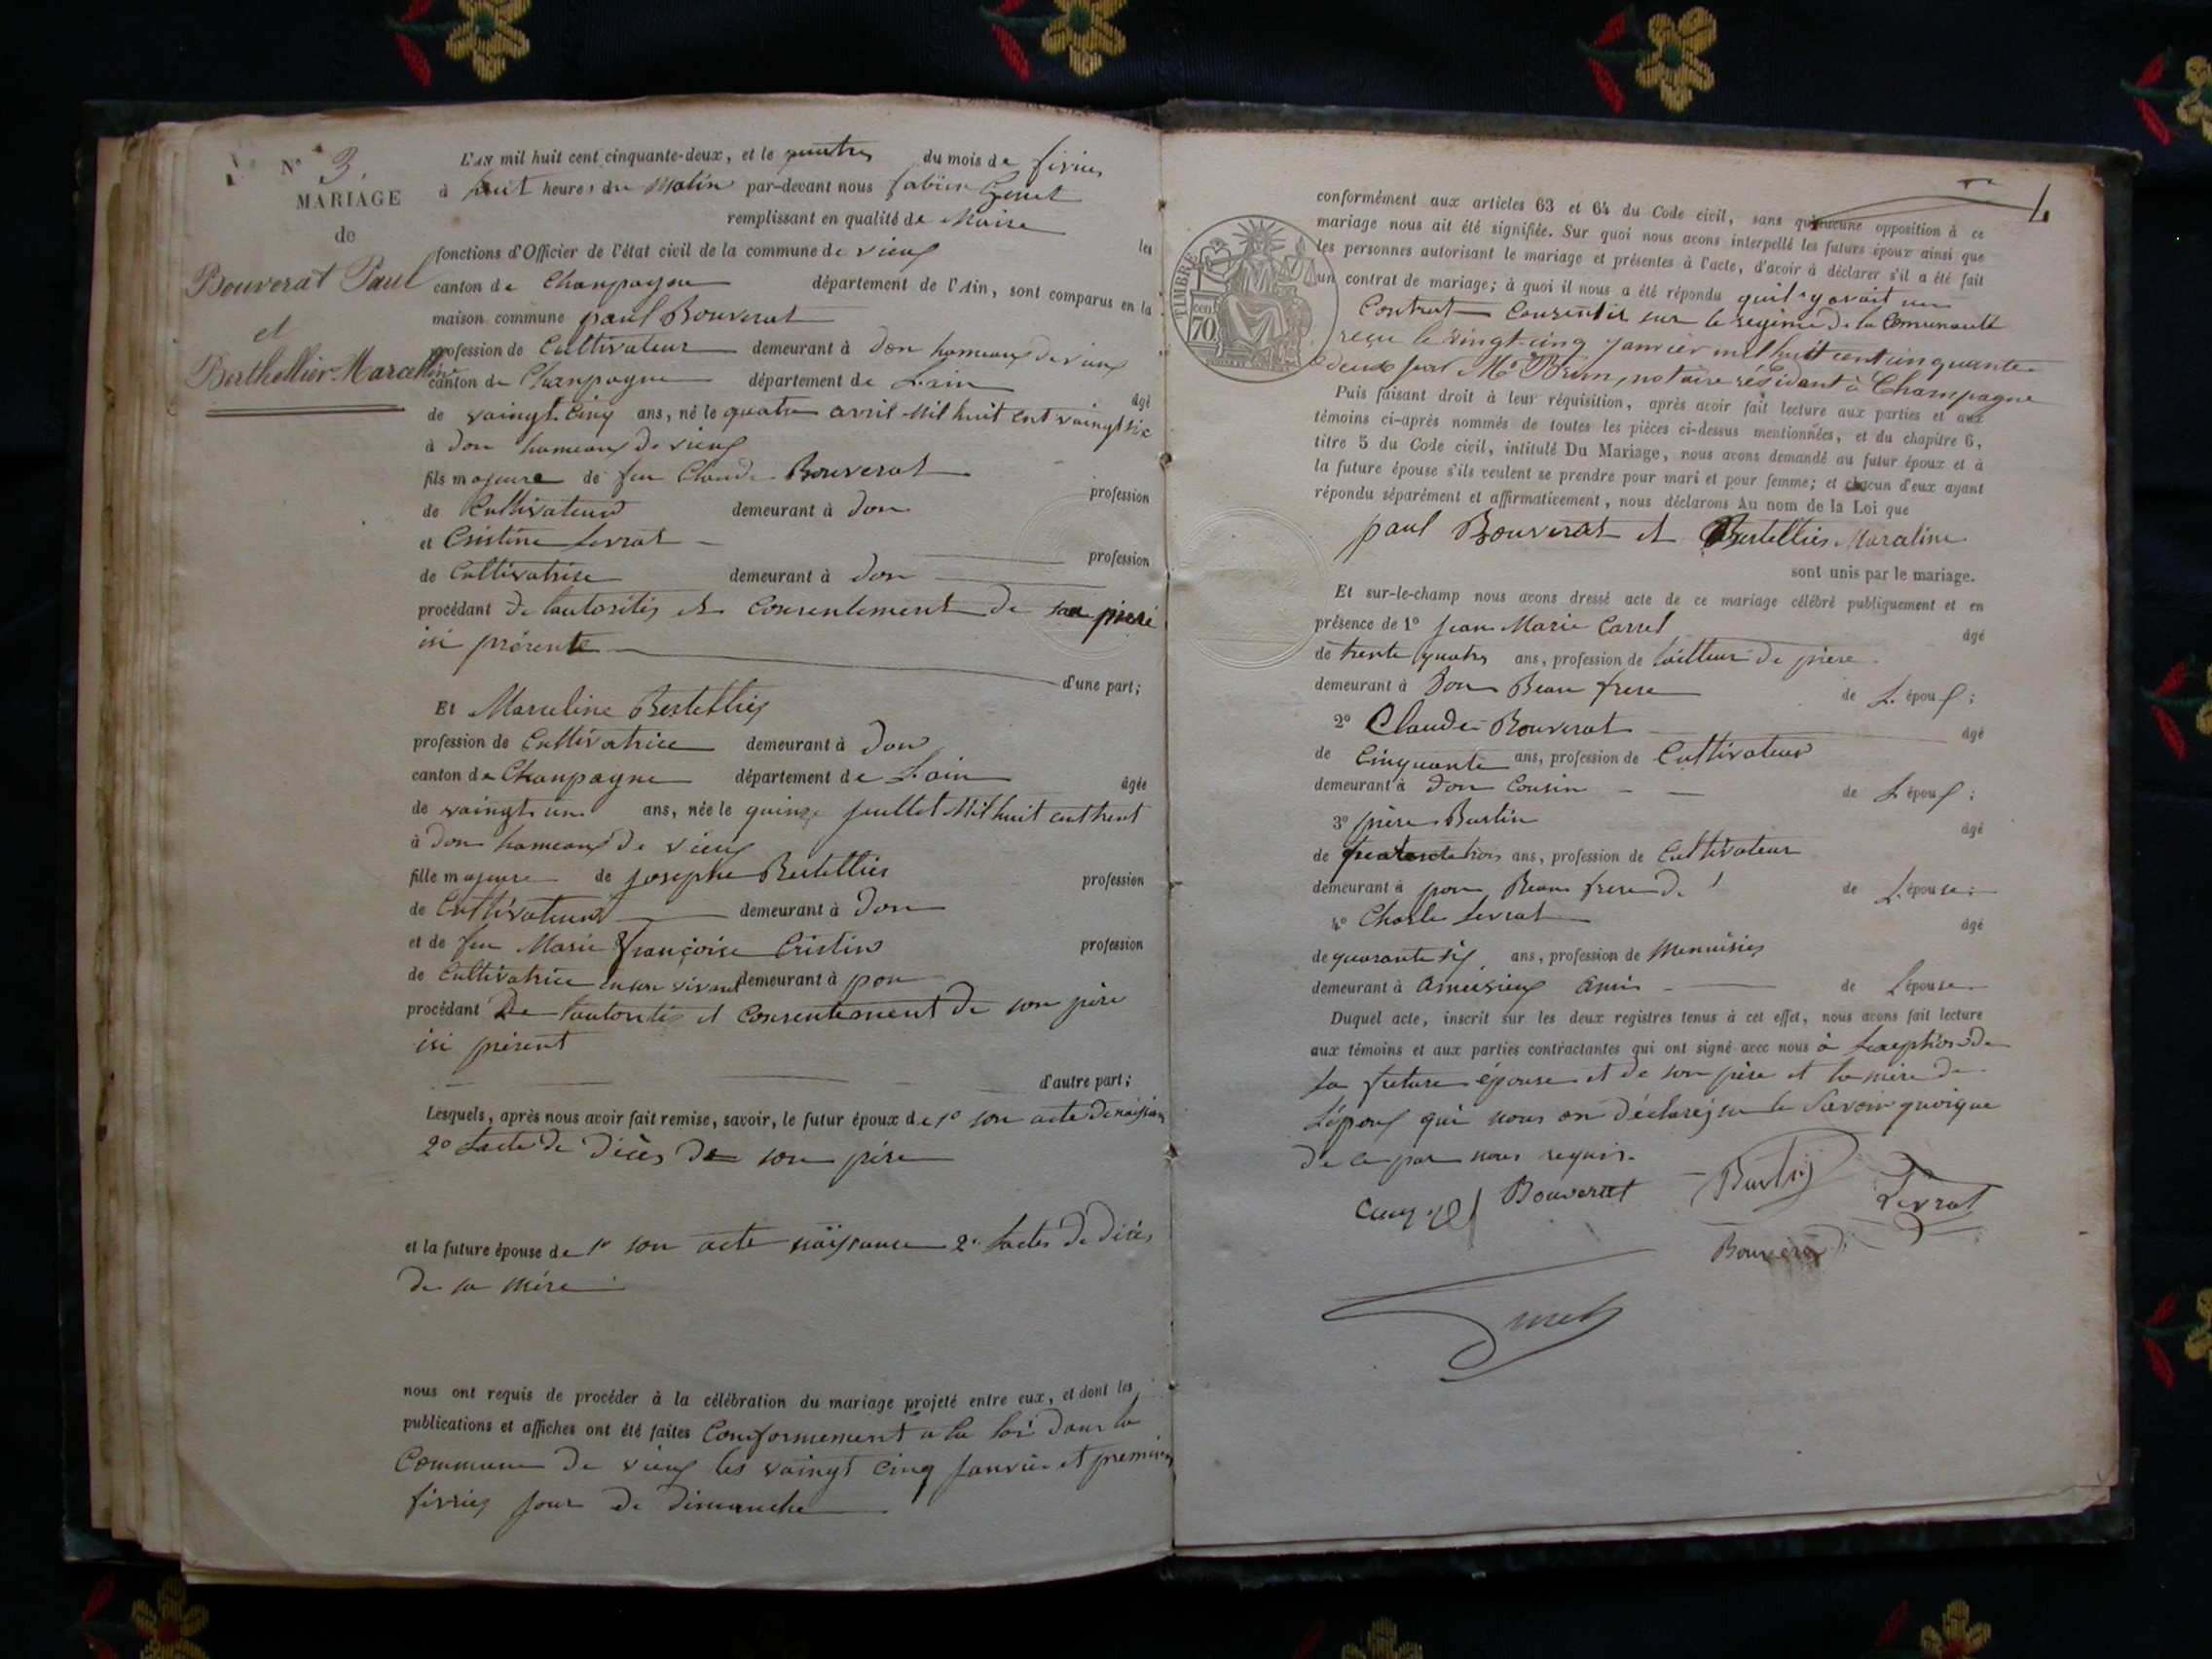 N° 3.
MARIAGE
de
Bouverat Paul
et
Berthellier Marcelline
L'AN mil huit cent cinquante-deux, et le quatres du mois de févries
à huit heures du Matin par-devant nous fabien Genet
remplissant en qualité de Maire les
fonctions d'Officier de l'état civil de la commune de vieux
canton de Chanpagne département de l'Ain, sont comparus en la
maison commune paul Bouverat
profession de Cultivateur demeurant à don hameaux de vieux
canton de Chanpagne département de L'ain âgé
de vaingt Cinq ans, né le quatre avril Mil huit cent vaingt six
à don hameaux de vieux
fils majeure de feu Claude Bouverat profession
de Cultivateur demeurant à don
et Cristine Levrat profession
de Cultivatrise demeurant à don
procédant de lautorités et Consentement de sa mere
isi présente
d'une part;
Et Marceline Bertellies
profession de Cultivatrice demeurant à don
canton de Chanpagne département de L'ain âgée
de vaingt un ans, née le quinze juillet Mil huit cent trent
à don hameaux de vieux
fille majeure de josephe Bertellies profession
de Cultivateur demeurant à don
et de feu Marie Françoise Cristin profession
de Cultivatrice en son vivant demeurant à pon
procédant De lautorités et Consentement de son père
isi présent
d'autre part;
Lesquels, après nous avoir fait remise, savoir, le futur époux de 1° son acte de naissans
2° Lacte de décès de son père
et la future épouse de 1° son acte naissance 2° Lactes de décés
de sa mère
nous ont requis de procéder à la célébration du mariage projeté entre eux, et dont les
publications et affiches ont été faites Conformement a la loi dans la
Commune de vieux les vaingt cinq janvier et premier
févries jour de dimanche
conformément aux articles 63 et 64 du Code civil, sans qu'aucune opposition à ce
mariage nous ait été signifiée. Sur quoi nous avons interpellé les futurs époux ainsi que
les personnes autorisant le mariage et présentes à l'acte, d'avoir à déclarer s'il a été fait
un contrat de mariage; à quoi il nous a été répondu quil y avait un
Contrat Consentis sur le regime de la Comunauté
reçu le vingt-cinq janvier mil huit cent cinquante
deux par Me Brun, notaire résidant à Champagne
TIMBRE
70
Puis faisant droit à leur réquisition, après avoir fait lecture aux parties et aux
témoins ci-après nommés de toutes les pièces ci-dessus mentionnées, et du chapitre 6,
titre 5 du Code civil, intitulé Du Mariage, nous avons demandé au futur époux et à
la future épouse s'ils veulent se prendre pour mari et pour femme; et chacun d'eux ayant
répondu séparément et affirmativement, nous déclarons Au nom de la Loi que
paul Bouverat et Bertellies Marceline
sont unis par le mariage.
Et sur-le-champ nous avons dressé acte de ce mariage célébré publiquement et en
présence de 1° jean Marie Carrel âgé
de trente quatres ans, profession de tailleur de piere
demeurant à Don Beau frere de L'époux;
2° Claude Bouverat âgé
de Cinquante ans, profession de Cultivateur
demeurant à don Cousin de L'époux;
3° Burtin âgé
de trois ans, profession de Cultivateur
demeurant à pon Beau frere de de L'épouse;
4° Charle Levrat âgé
de quarante six ans, profession de Menuisier
demeurant à Ameisieux Amis de L'épouse
Duquel acte, inscrit sur les deux registres tenus à cet effet, nous avons fait lecture
aux témoins et aux parties contractantes qui ont signé avec nous à Lexeption de
la future épouse et de son père et la mère de
Lépoux qui nous on déclarés ne le Savoir quoique
de ce par nous requis.
Bouverat Burtin Levrat
Bouverat
Genet